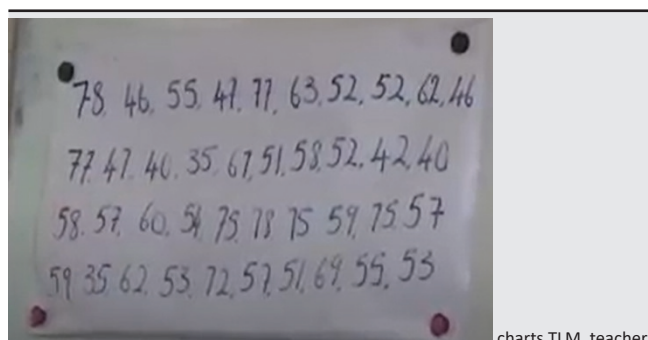 78. 46. 55. 47. 77. 63. 52. 52. 62. 46
77. 47. 40. 35. 67. 51. 58. 52. 42. 40
58. 57. 60. 54. 75. 78 75 59. 75. 57
59 35. 62. 53. 72. 57. 51. 69. 55. 53
charts TLM, teacher